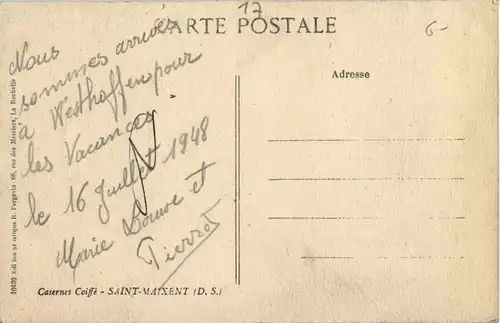 17
CARTE POSTALE
6-
Adresse
Nous
sommes arrivés
à Westhoffen pour
les Vacances
le 16 Juillet 1948
Marie Louise et
Pierrot
Casernes Coiffé - SAINT-MAIXENT (D. S.)
B. Fergerin 60, rue des Merciers, La Rochelle